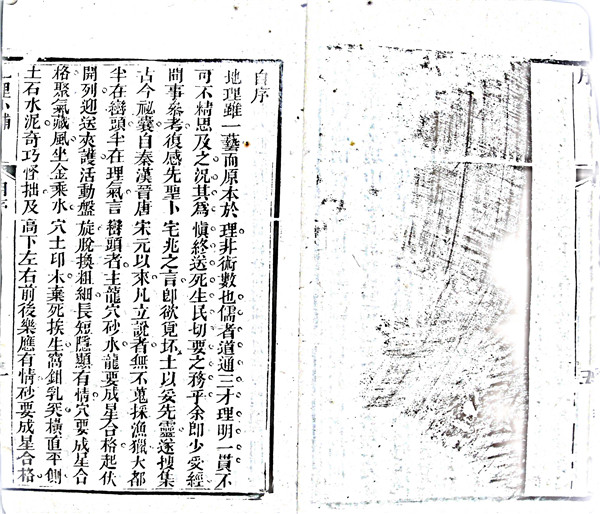 序
自序
地理雖一藝而原本於理非術數也儒者道通三才理明一貫不
可不精思及之況其為慎終送死生民切要之務乎余即少受經
問事參考復感先聖卜宅兆之言即欲覓坏土以妥先靈遂搜集
古今祕囊自秦漢晉唐宋元以來凡立說者無不蒐採漁獵大都
半在巒頭半在理氣言巒頭者主龍穴砂水龍要成星合格起伏
開列迎送夾護活動盤旋脫換粗細長短隱顯有情穴要成星合
格聚氣藏風坐金乘水穴土印木棄死挨生窩鉗乳突橫直平側
土石水泥奇巧怪拙及高下左右前後樂應有情砂要成星合格